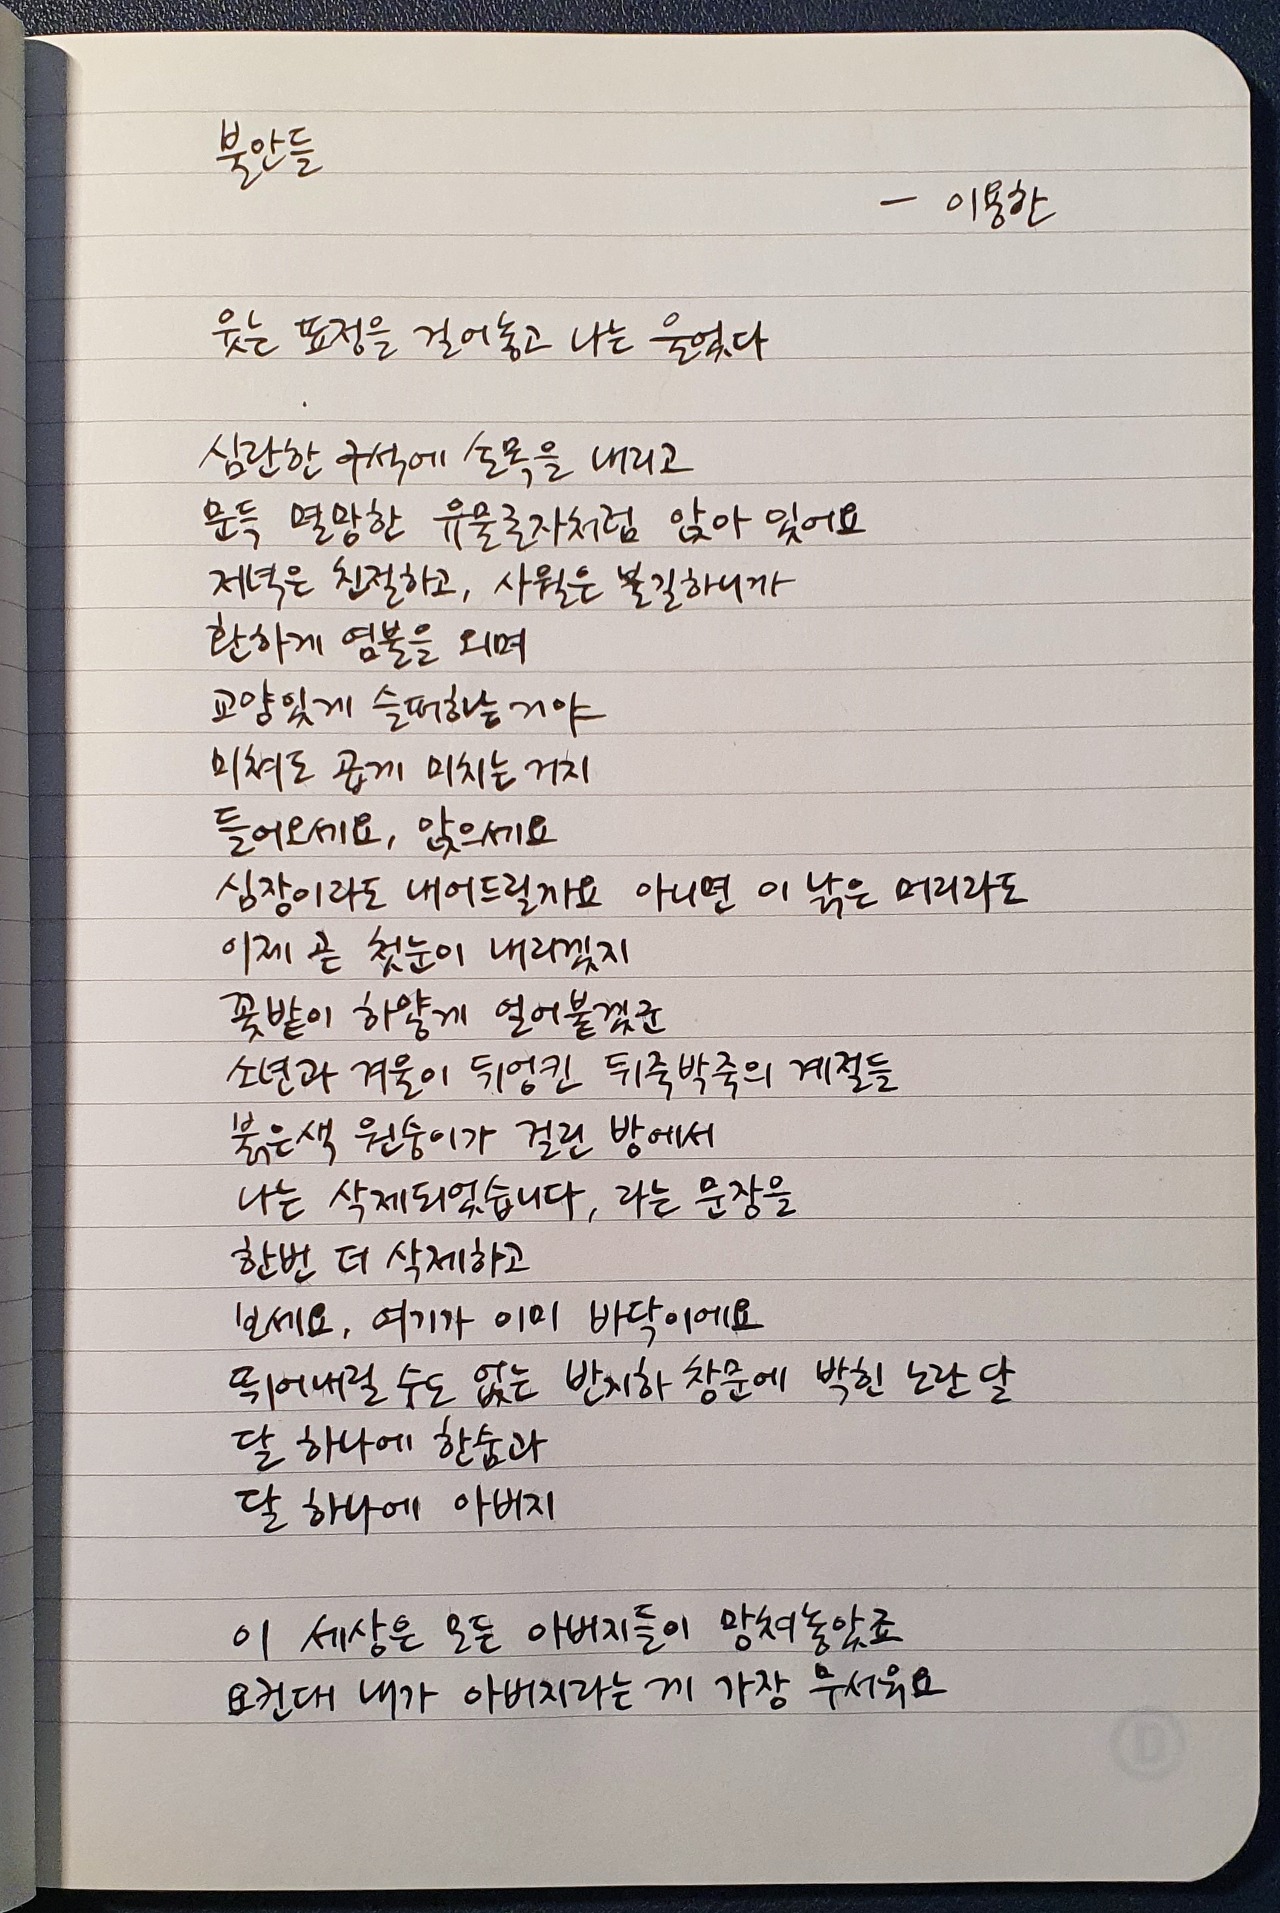 불안들
— 이용한
웃는 표정을 걸어놓고 나는 울었다
심란한 구석에 손목을 내리고
문득 멸망한 유물론자처럼 앉아 있어요
저녁은 친절하고, 사월은 불길하니까
환하게 염불을 외며
교양있게 슬퍼하는거야
미쳐도 곱게 미치는거지
들어오세요, 앉으세요
심장이라도 내어드릴까요 아니면 이 낡은 머리라도
이제 곧 첫눈이 내리겠지
꽃밭이 하얗게 얼어붙겠군
소년과 겨울이 뒤엉킨 뒤죽박죽의 계절들
붉은색 원숭이가 걸린 방에서
나는 삭제되었습니다, 라는 문장을
한번 더 삭제하고
보세요, 여기가 이미 바닥이에요
뛰어내릴 수도 없는 반지하 창문에 박힌 노란 달
달 하나에 한숨과
달 하나에 아버지
이 세상은 모든 아버지들이 망쳐놓았죠
요컨대 내가 아버지라는 게 가장 무서워요